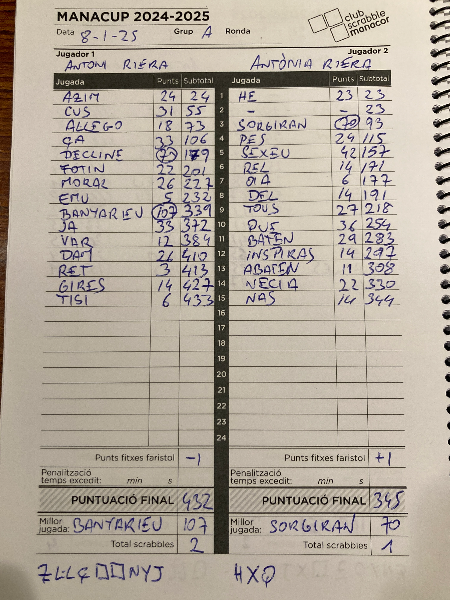 MANACUP 2024-2025
club scrabble manacor
Data 8-1-25 Grup A Ronda
Jugador 1 Jugador 2
ANTONI RIERA ANTÒNIA RIERA
Jugada Punts Subtotal Jugada Punts Subtotal
AZIM 24 24 1 HE 23 23
CUS 31 55 2 - - 23
ALLEGO 18 73 3 SORGIRAN 70 93
ÇA 33 106 4 PES 24 115
DECLINE 73 179 5 SEXEU 42 157
FOTIN 22 201 6 REL 14 171
MORAL 26 227 7 OIA 6 177
EMU 5 232 8 DEL 14 191
BANYARIEU 107 339 9 TOUS 27 218
JA 33 372 10 QUE 36 254
VAR 12 384 11 BATEN 29 283
DAM 26 410 12 INSPIRAS 14 297
RET 3 413 13 ABATEN 11 308
GIRES 14 427 14 NECIA 22 330
TISI 6 433 15 NAS 14 344
16
17
18
19
20
21
22
23
24
Punts fitxes faristol -1 Punts fitxes faristol +1
Penalització temps excedit: min s Penalització temps excedit: min s
PUNTUACIÓ FINAL 432 PUNTUACIÓ FINAL 345
Millor jugada: BANYARIEU 107 Millor jugada: SORGIRAN 70
Total scrabbles 2 Total scrabbles 1
HXQ